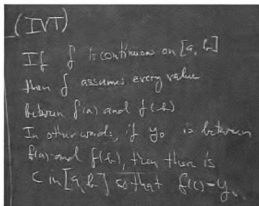 (IVT)
If f is continuous on [a, b]
then f assumes every value
between f(a) and f(b)
In other words, if y₀ is between
f(a) and f(b), then there is
c in [a, b] so that f(c) = y₀